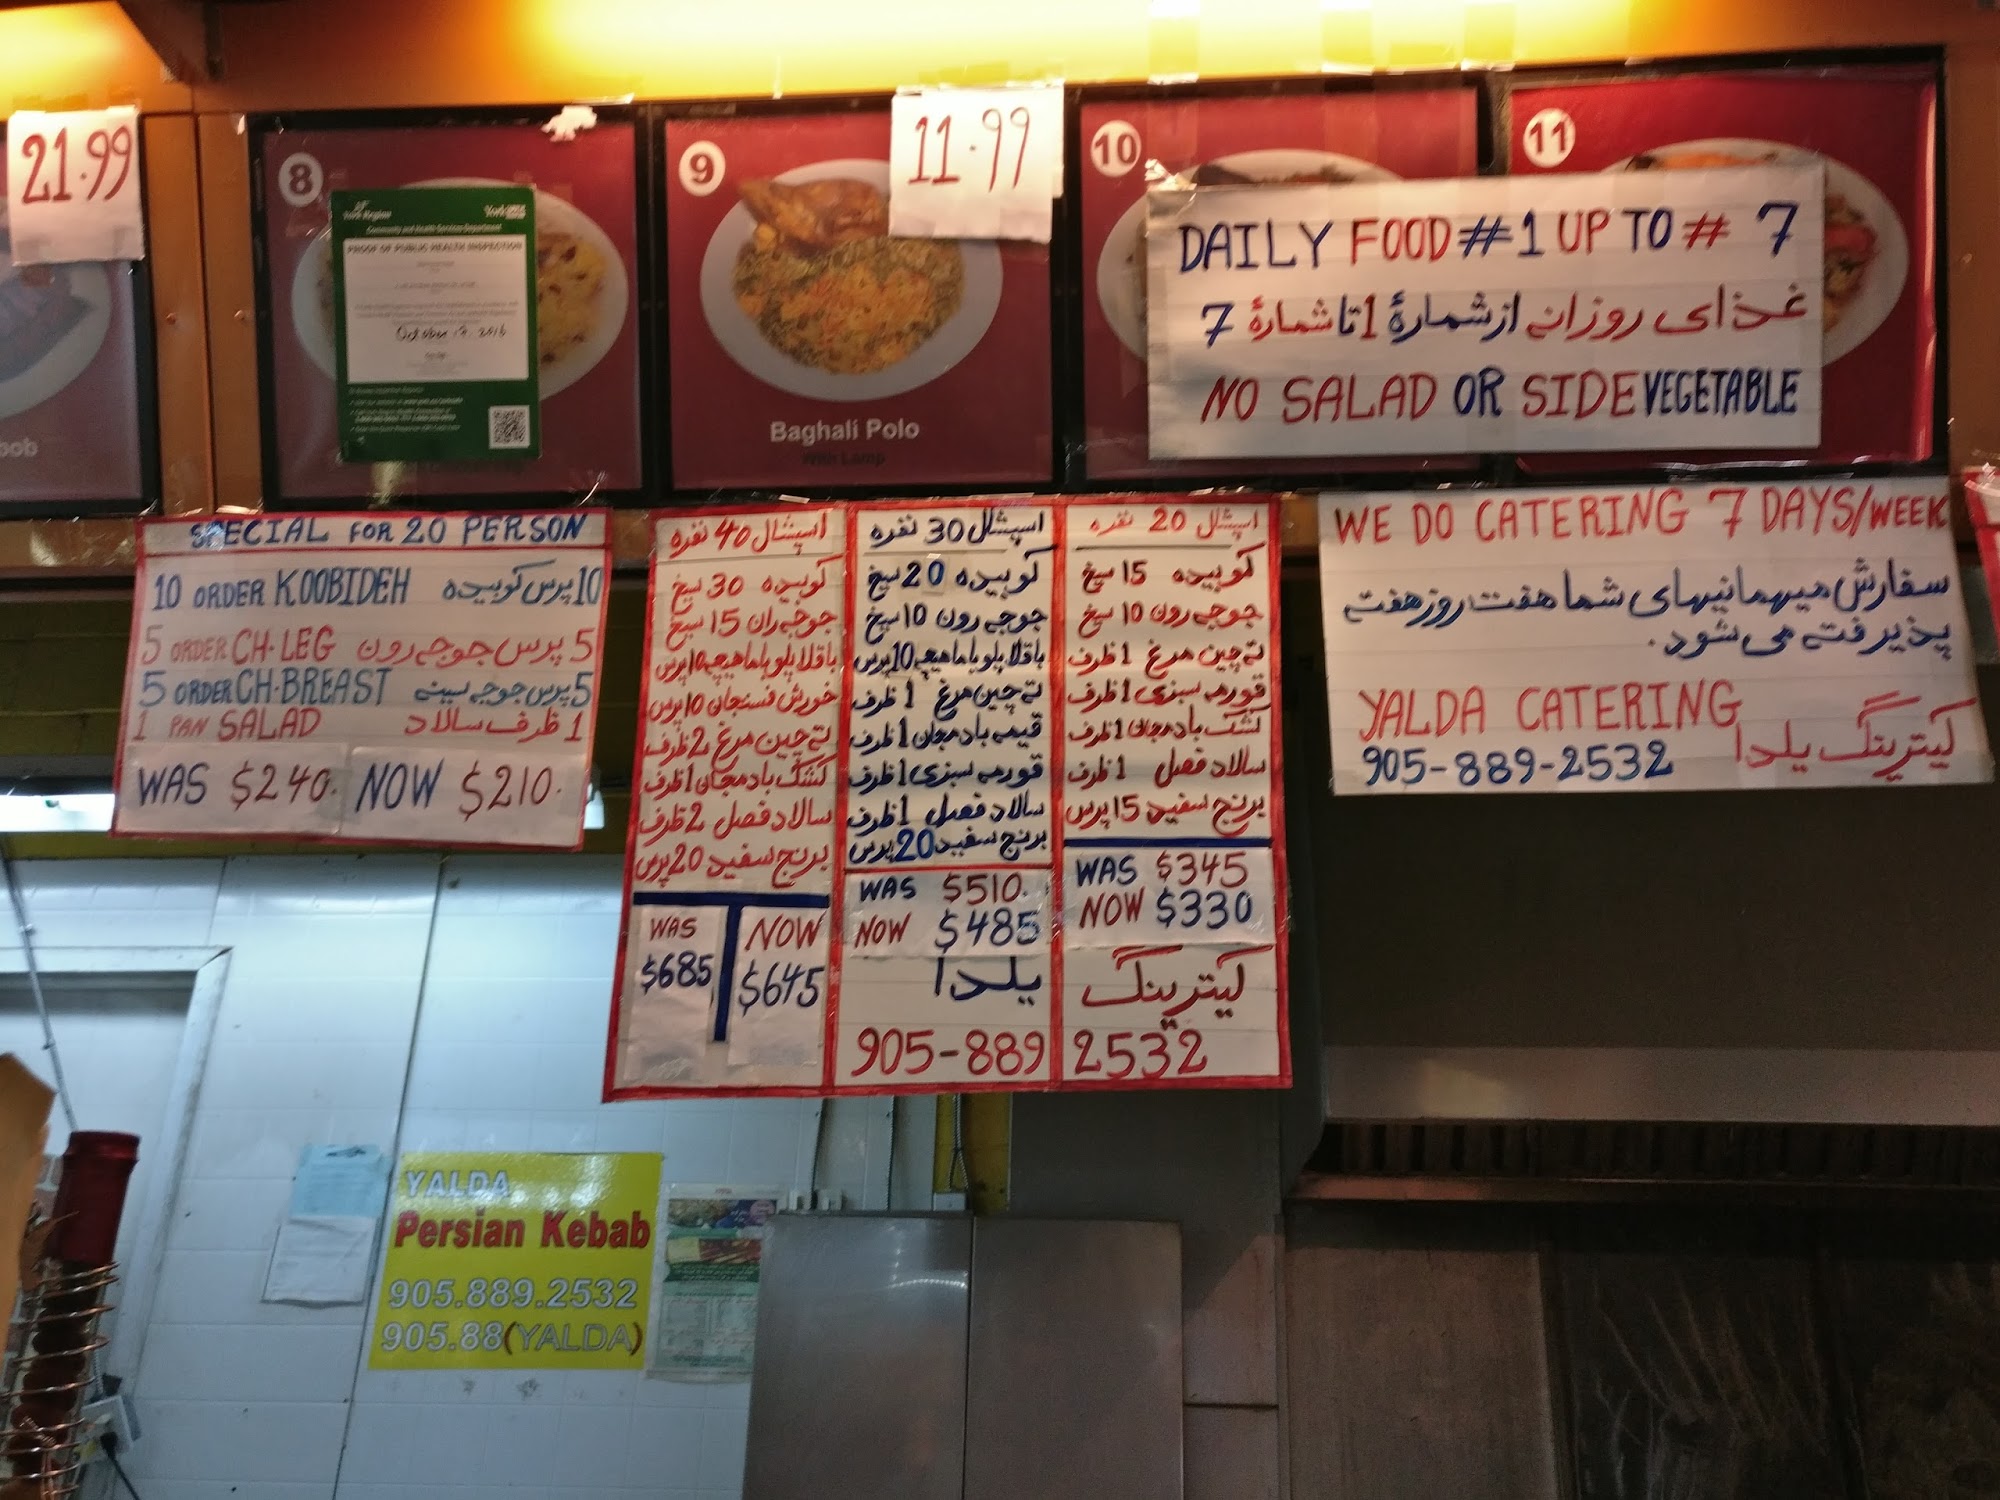 21.99
8
York Region
York
Community and Health Services Department
PROOF OF PUBLIC HEALTH INSPECTION
October 17, 2016
9
11.99
Baghali Polo
With Lamp
10
11
DAILY FOOD # 1 UP TO # 7
غذای روزانه از شمارهٔ 1 تا شمارهٔ 7
NO SALAD OR SIDE VEGETABLE
SPECIAL FOR 20 PERSON
10 ORDER KOOBIDEH 10 پرس کوبیده
5 ORDER CH.LEG 5 پرس جوجه رون
5 ORDER CH.BREAST 5 پرس جوجه سینه
1 PAN SALAD 1 ظرف سالاد
WAS $240. NOW $210.
اسپشال 40 نفره
کوبیده 30 سیخ
جوجه ران 15 سیخ
باقلا پلو با ماهیچه 10 پرس
خورش فسنجان 10 پرس
ته چین مرغ 2 ظرف
کشک بادمجان 1 ظرف
سالاد فصل 2 ظرف
برنج سفید 20 پرس
WAS
$685
NOW
$645
اسپشال 30 نفره
کوبیده 20 سیخ
جوجه رون 10 سیخ
باقلا پلو با ماهیچه 10 پرس
ته چین مرغ 1 ظرف
قیمه بادمجان 1 ظرف
قورمه سبزی 1 ظرف
سالاد فصل 1 ظرف
برنج سفید 20 پرس
WAS $510.
NOW $485
یلدا
905-889
اسپشال 20 نفره
کوبیده 15 سیخ
جوجه رون 10 سیخ
ته چین مرغ 1 ظرف
قورمه سبزی 1 ظرف
کشک بادمجان 1 ظرف
سالاد فصل 1 ظرف
برنج سفید 15 پرس
WAS $345
NOW $330
کیترینگ
2532
WE DO CATERING 7 DAYS/WEEK
سفارش میهمانیهای شما هفت روز هفته
پذیرفته می شود.
YALDA CATERING
کیترینگ یلدا
905-889-2532
YALDA
Persian Kebab
905.889.2532
905.88(YALDA)